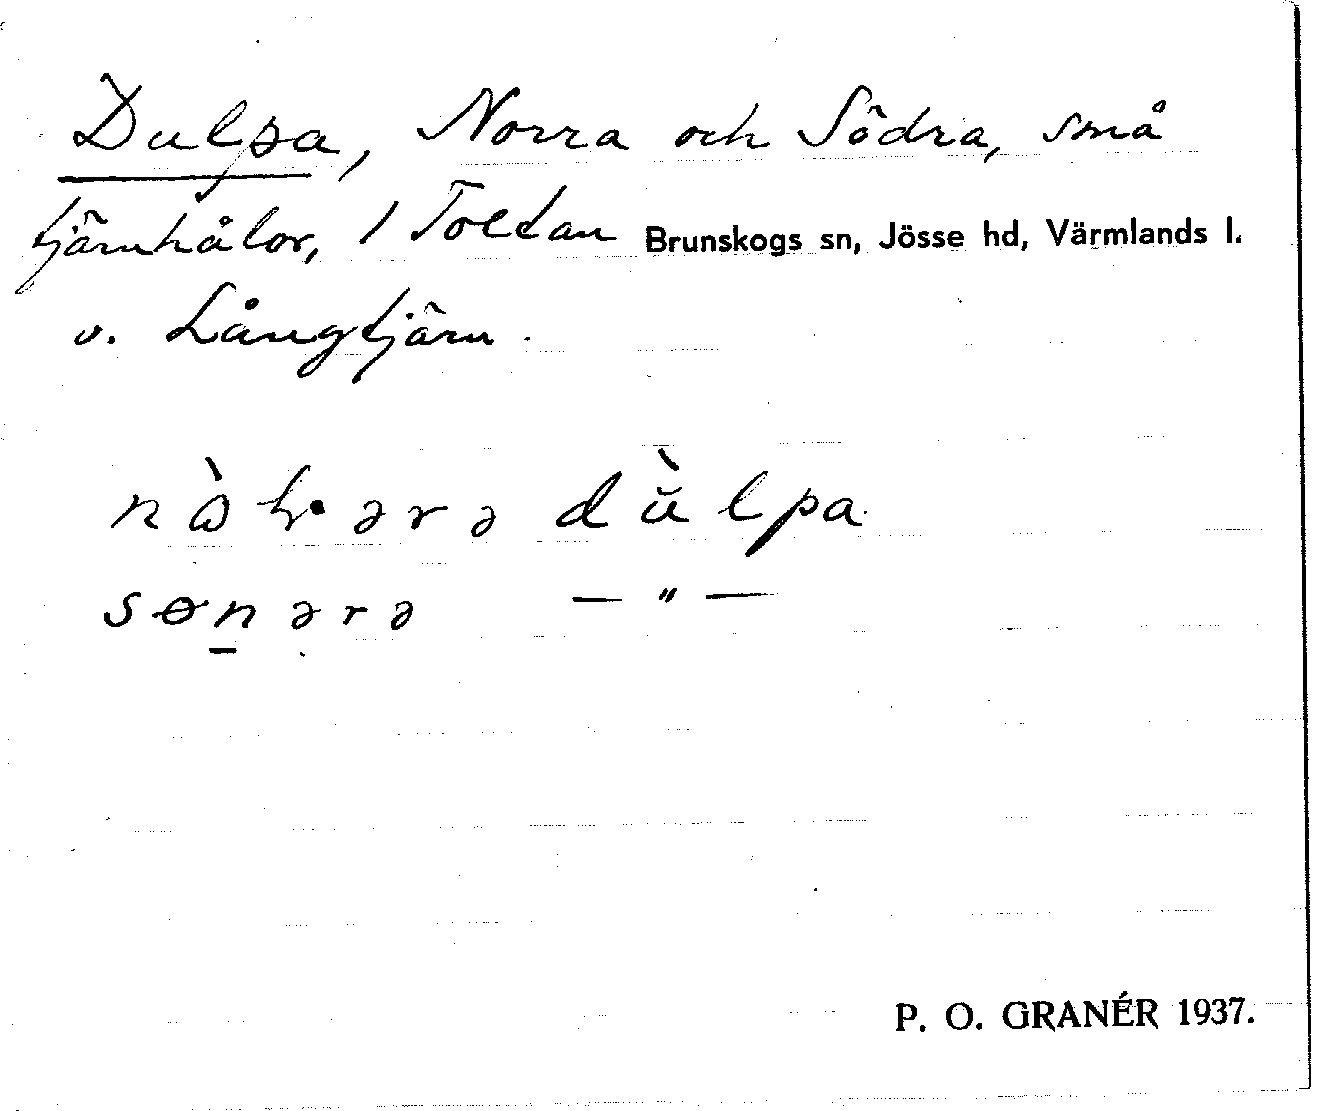 Dulpa, Norra och Södra, små
tjärnhålor, 1 Toltan Brunskogs sn, Jösse hd, Värmlands l.
v. Långtjärn.
dùlpa
sønərə — " —
P. O. GRANÉR 1937.